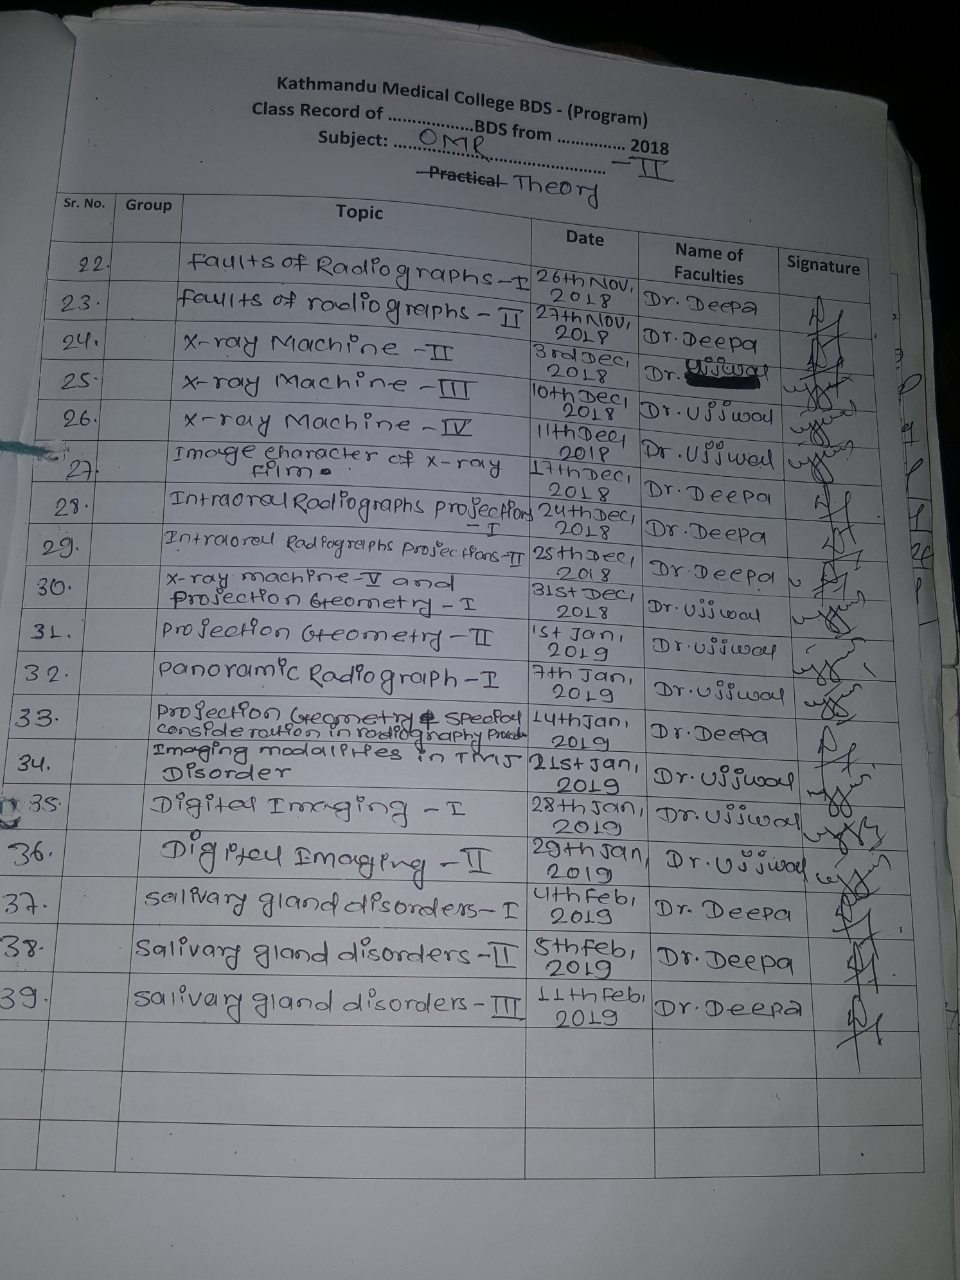 Kathmandu Medical College BDS - (Program)
Class Record of .................BDS from .............. 2018
Subject: ...OMR................................ - II
Practical Theory
Sr. No. Group Topic Date Name of Faculties Signature
22. Faults of Radiographs - I 26th Nov, 2018 Dr. Deepa
23. Faults of radiographs - II 27th Nov, 2018 Dr. Deepa
24. X-ray Machine - II 3rd Dec, 2018 Dr. Ujjwal
25. X-ray Machine - III 10th Dec, 2018 Dr. Ujjwal
26. X-ray Machine - IV 11th Dec, 2018 Dr. Ujjwal
27. Image character of x-ray
Film. 17th Dec, 2018 Dr. Deepa
28. Intraoral Radiographs projections
- I 24th Dec, 2018 Dr. Deepa
29. Intraoral Radiographs projections - II 25th Dec, 2018 Dr. Deepa
30. X-ray machine - V and
projection Geometry - I 31st Dec, 2018 Dr. Ujjwal
31. Projection Geometry - II 1st Jan, 2019 Dr. Ujjwal
32. Panoramic Radiograph - I 7th Jan, 2019 Dr. Ujjwal
33. Projection Geometry & special
consideration in radiography 14th Jan, 2019 Dr. Deepa
34. Imaging modalities in TMJ
Disorder 21st Jan, 2019 Dr. Ujjwal
35. Digital Imaging - I 28th Jan, 2019 Dr. Ujjwal
36. Digital Imaging - II 29th Jan, 2019 Dr. Ujjwal
37. Salivary gland disorders - I 4th Feb, 2019 Dr. Deepa
38. Salivary gland disorders - II 5th Feb, 2019 Dr. Deepa
39. Salivary gland disorders - III 11th Feb, 2019 Dr. Deepa